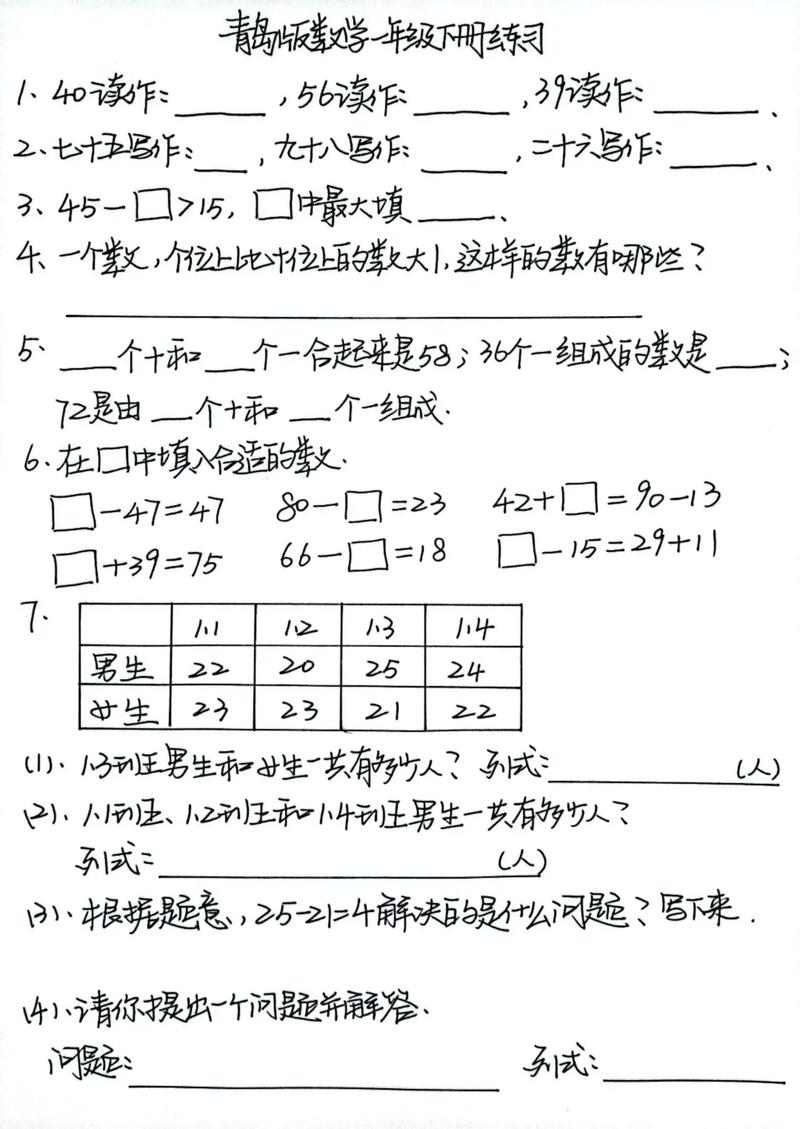 青岛版数学一年级下册练习
1、40读作:______,56读作:______,39读作:______、
2、七十五写作:____,九十八写作:______,二十六写作:______、
3、45-□>15,□中最大填_____、
4、一个数,个位上比十位上的数大1,这样的数有哪些?
5、____个十和____个一合起来是58;36个一组成的数是____;
72是由___个十和___个一组成.
6、在□中填入合适的数.
□-47=47 80-□=23 42+□=90-13
□+39=75 66-□=18 □-15=29+11
7.
1.1 1.2 1.3 1.4
男生 22 20 25 24
女生 23 23 21 22
(1)、1.3班男生和女生一共有多少人?列式:____________(人)
(2)、1.1班、1.2班和1.4班男生一共有多少人?
列式:____________________(人)
(3)、根据题意,25-21=4解决的是什么问题?写下来.
(4)、请你提出一个问题并解答、
问题:____________________ 列式:__________